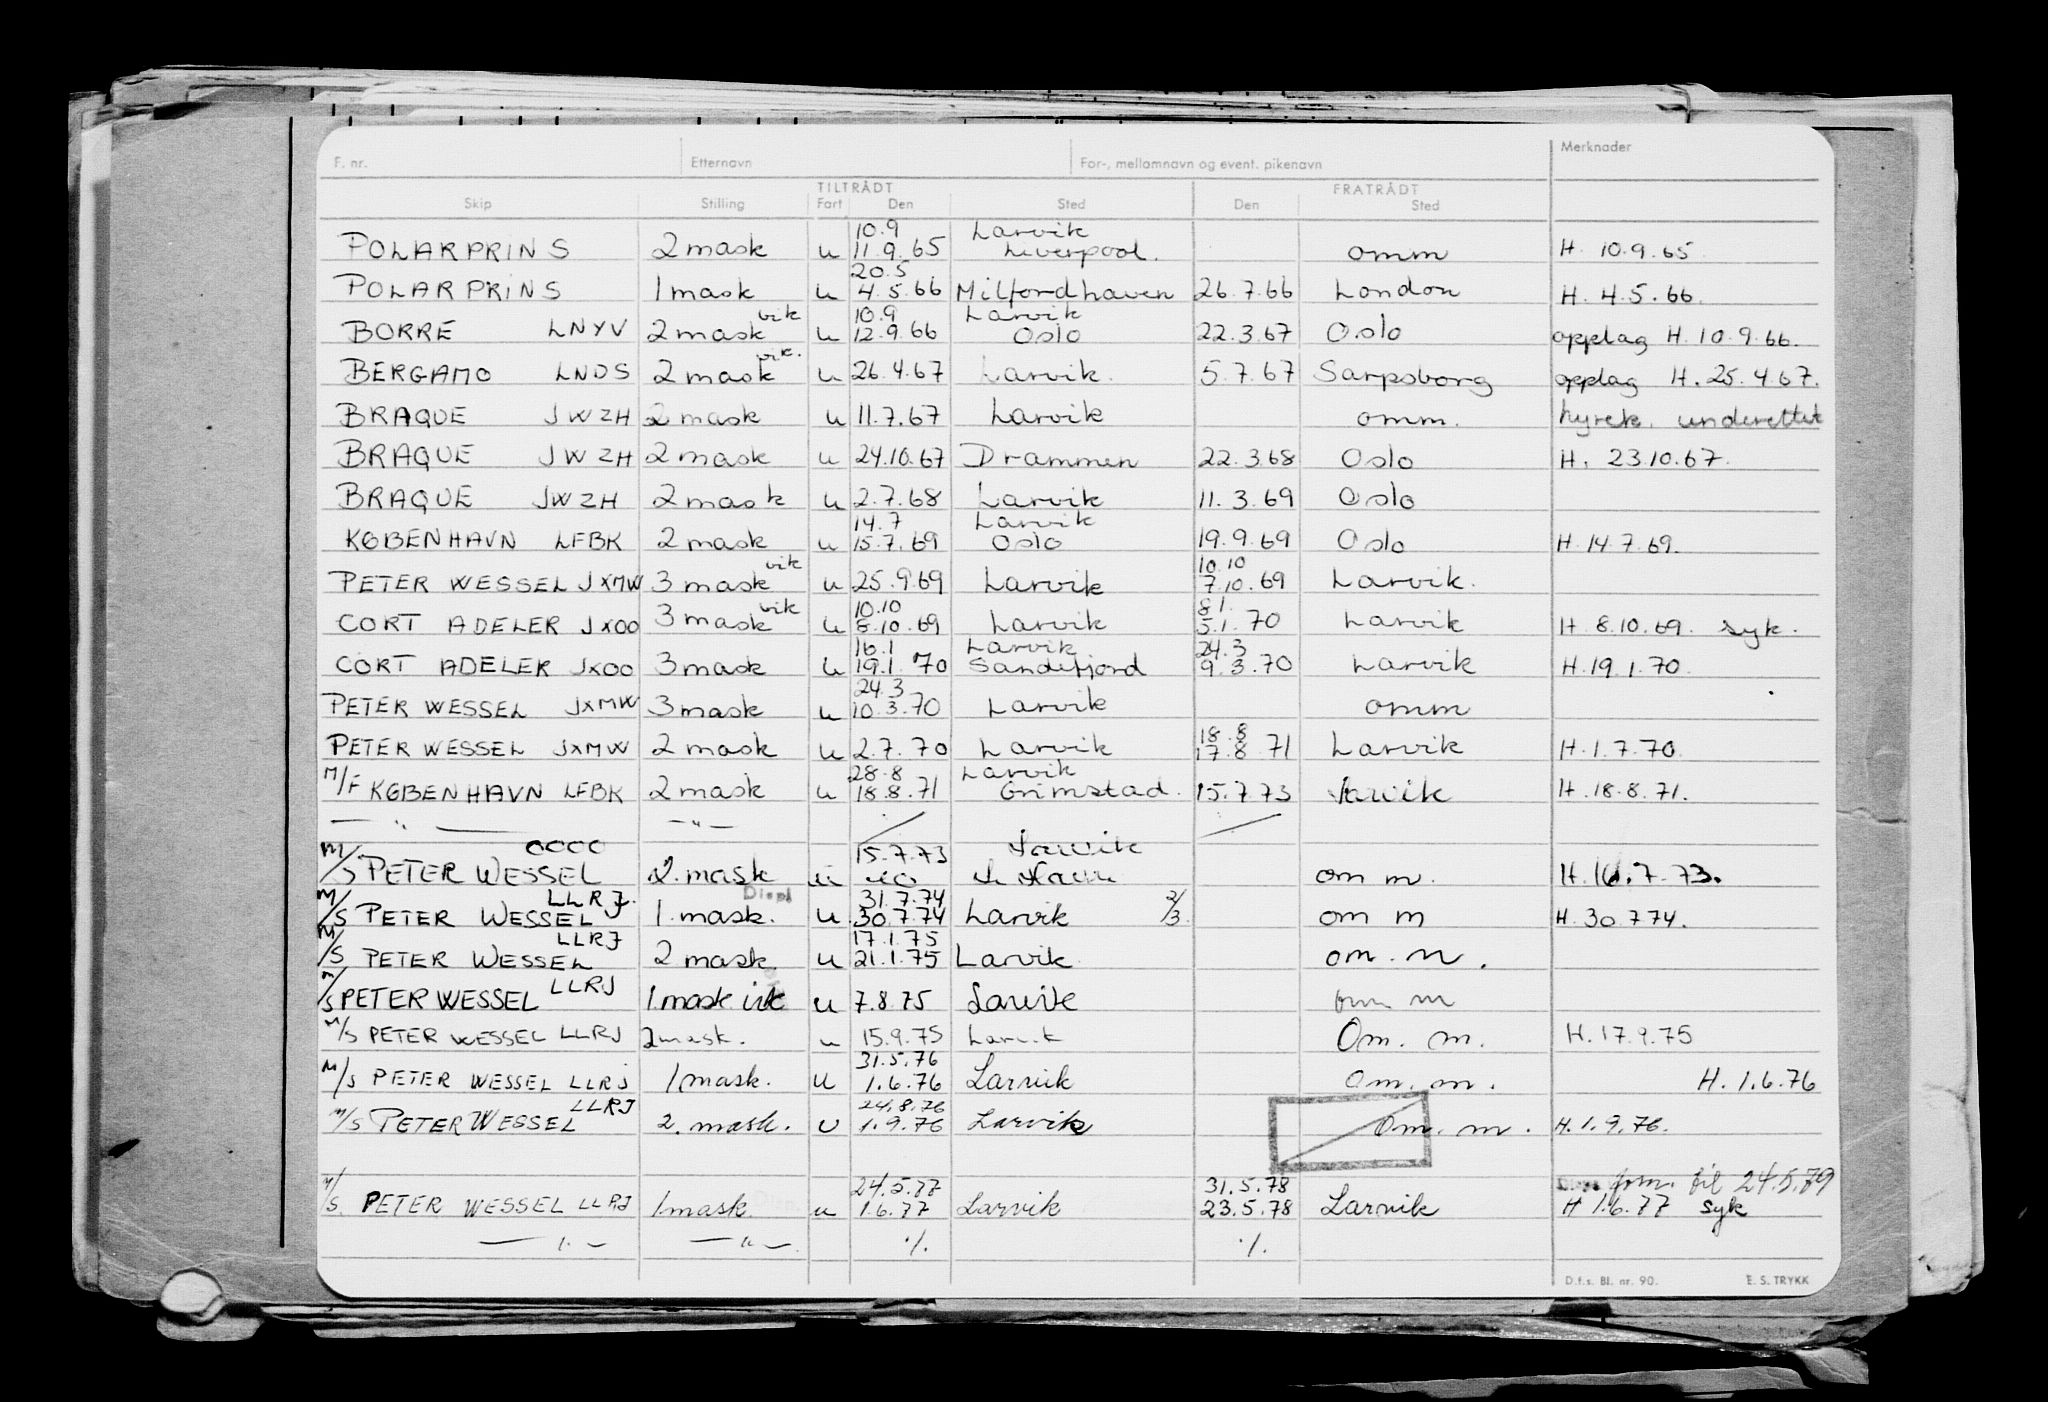 F. nr. Etternavn For-, mellomnavn og event. pikenavn Merknader
TILTRÅDT FRATRÅDT
Skip Stilling Fart Den Sted Den Sted
10.9 Larvik
POLARPRINS 2 mask u 11.9.65 Liverpool. omm H. 10.9.65
20.5
POLARPRINS 1 mask u 4.5.66 Milfordhaven 26.7.66 London H. 4.5.66.
vik 10.9 Larvik
BORRE LNYV 2 mask u 12.9.66 Oslo 22.3.67 Oslo opplag H. 10.9.66.
vik.
BERGAMO LNDS 2 mask u 26.4.67 Larvik. 5.7.67 Sarpsborg opplag H. 25.4.67.
BRAQUE JWZH 2 mask u 11.7.67 Larvik omm. hyrek. underettet
BRAQUE JWZH 2 mask u 24.10.67 Drammen 22.3.68 Oslo H. 23.10.67.
BRAQUE JWZH 2 mask u 2.7.68 Larvik 11.3.69 Oslo
14.7 Larvik
KØBENHAVN LFBK 2 mask u 15.7.69 Oslo 19.9.69 Oslo H. 14.7.69.
vik 10.10
PETER WESSEL JXMW 3 mask u 25.9.69 Larvik 7.10.69 Larvik.
vik 10.10 8.1.
CORT ADELER JXOO 3 mask u 8.10.69 Larvik 5.1.70 Larvik H. 8.10.69. syk.
16.1 Larvik 24.3
CORT ADELER JXOO 3 mask u 19.1.70 Sandefjord 9.3.70 Larvik H. 19.1.70.
24.3
PETER WESSEL JXMW 3 mask u 10.3.70 Larvik omm
18.8
PETER WESSEL JXMW 2 mask u 2.7.70 Larvik 17.8.71 Larvik H. 1.7.70.
28.8 Larvik
M/F KØBENHAVN LFBK 2 mask u 18.8.71 Grimstad. 15.7.73 Larvik H. 18.8.71.
— " — — " — / /
OOOO 15.7.73 Larvik
M/S PETER WESSEL 2. mask u om m. H. 16.7.73.
LLRJ. Displ 31.7.74 2/3
M/S PETER WESSEL 1. mask. u 30.7.74 Larvik om m H. 30.7.74.
LLRJ 17.1.75
M/S PETER WESSEL 2 mask u 21.1.75 Larvik om. m.
M/S PETER WESSEL LLRJ 1. mask vik u 7.8.75 Larvik om m
M/S PETER WESSEL LLRJ 2 mask. u 15.9.75 Larvik Om. m. H. 17.9.75
31.5.76
M/S PETER WESSEL LLRJ 1 mask. u 1.6.76 Larvik Om. m. H. 1.6.76
LLRJ 24.8.76
M/S PETER WESSEL 2. mask. u 1.9.76 Larvik Om. m. H. 1.9.76.
24.5.77 31.5.78 Disp. forn. til 24.5.79
M/S. PETER WESSEL LLRJ 1 mask. u 1.6.77 Larvik 23.5.78 Larvik H 1.6.77 syk
— " — — " — ./. ./.
D.f.s. Bl. nr. 90. E. S. TRYKK